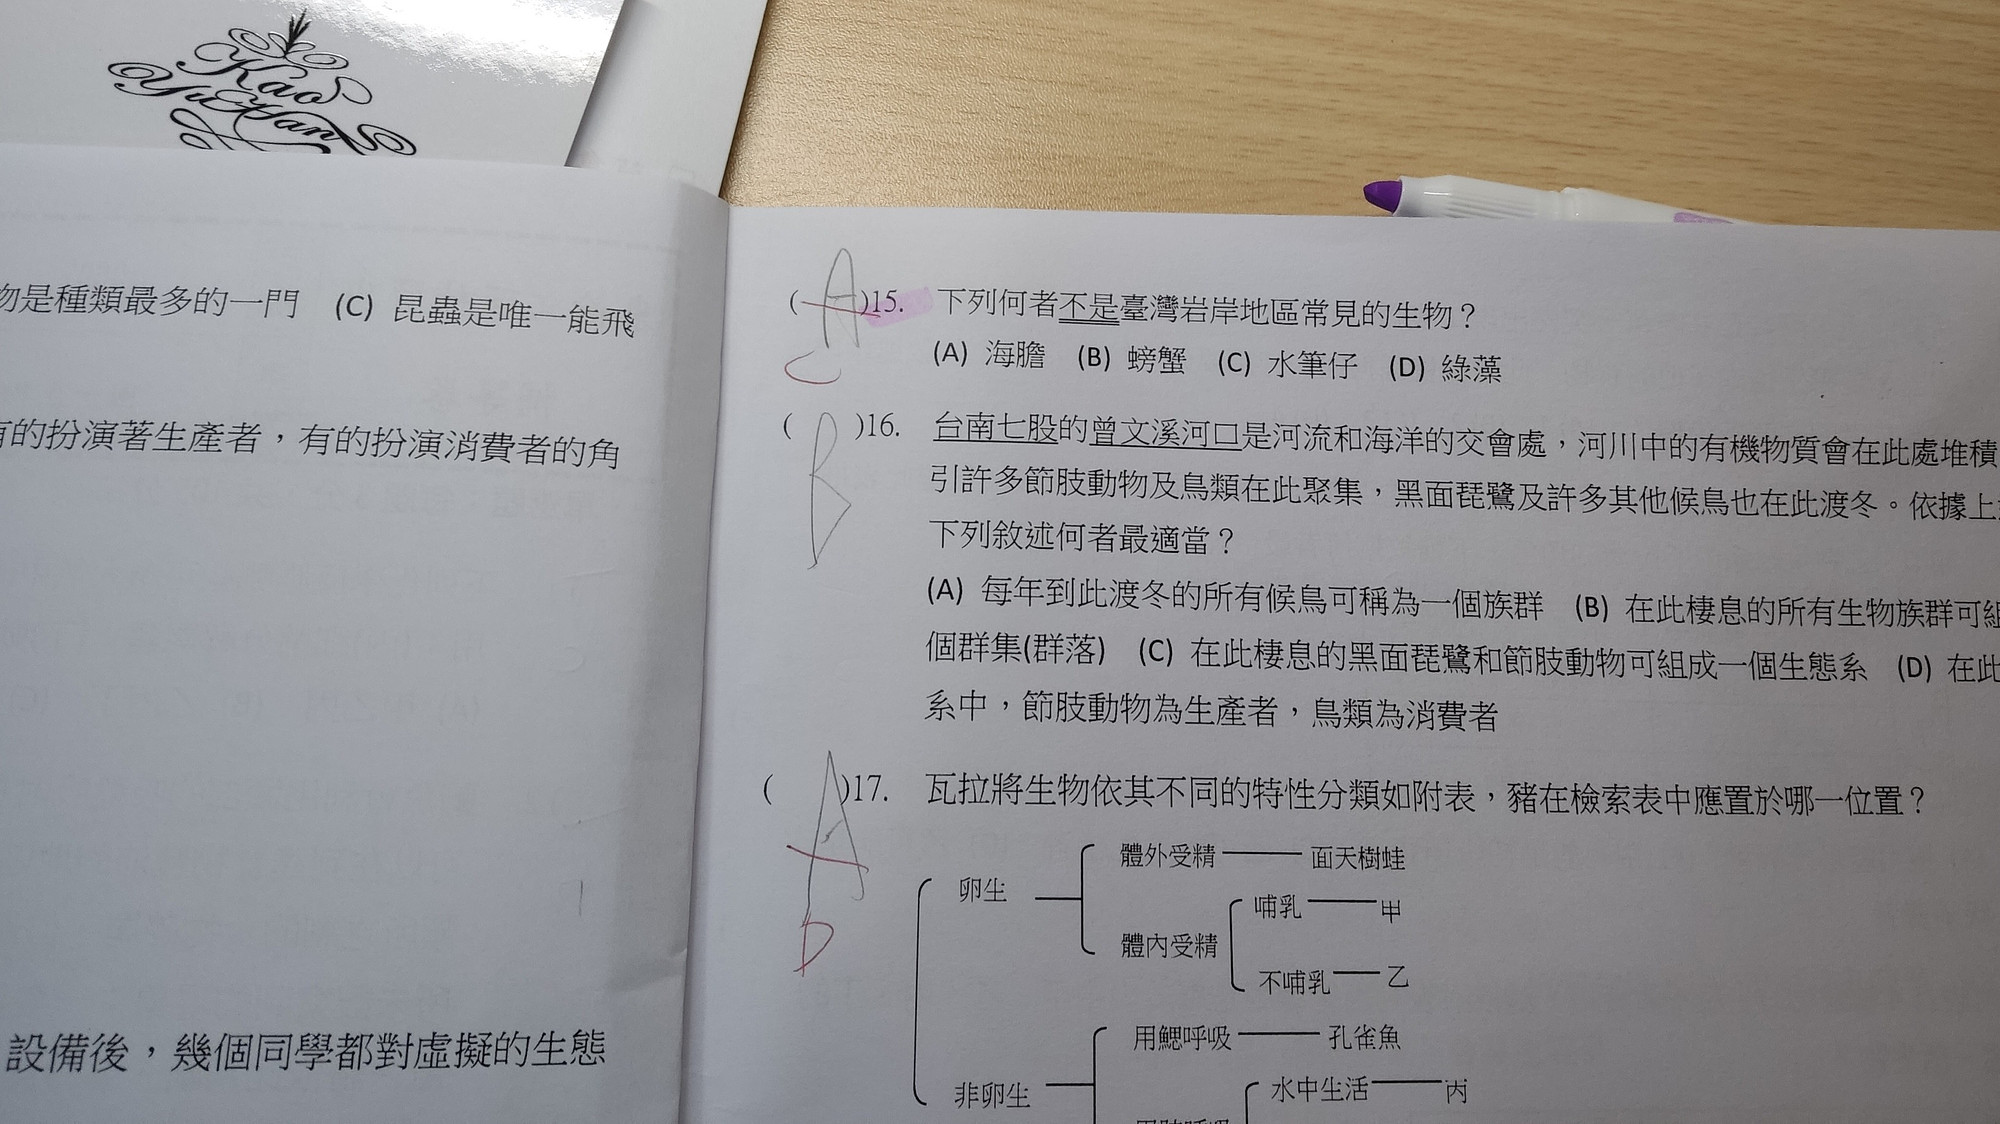 Kao
YuHan
物是種類最多的一門 (C) 昆蟲是唯一能飛
有的扮演著生產者，有的扮演消費者的角
設備後，幾個同學都對虛擬的生態
( A )15. 下列何者不是臺灣岩岸地區常見的生物？
C
(A) 海膽 (B) 螃蟹 (C) 水筆仔 (D) 綠藻
( B )16. 台南七股的曾文溪河口是河流和海洋的交會處，河川中的有機物質會在此處堆積
引許多節肢動物及鳥類在此聚集，黑面琵鷺及許多其他候鳥也在此渡冬。依據上
下列敘述何者最適當？
(A) 每年到此渡冬的所有候鳥可稱為一個族群 (B) 在此棲息的所有生物族群可組
個群集(群落) (C) 在此棲息的黑面琵鷺和節肢動物可組成一個生態系 (D) 在此
系中，節肢動物為生產者，鳥類為消費者
( A )17. 瓦拉將生物依其不同的特性分類如附表，豬在檢索表中應置於哪一位置？
D
體外受精 面天樹蛙
卵生
哺乳 甲
體內受精
不哺乳 乙
用鰓呼吸 孔雀魚
非卵生
水中生活 丙